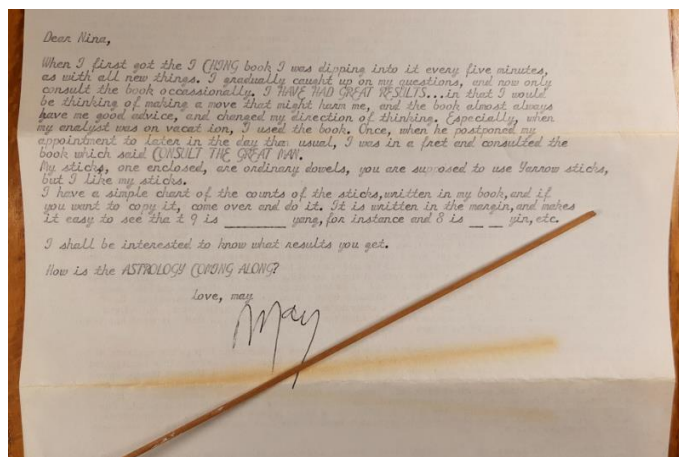 Dear Nina,
When I first got the I CHING book I was dipping into it every five minutes,
as with all new things. I gradually caught up on my questions, and now only
consult the book occassionally. I HAVE HAD GREAT RESULTS...in that I would
be thinking of making a move that might harm me, and the book almost always
have me good advice, and changed my direction of thinking. Especially, when
my analyst was on vacat ion, I used the book. Once, when he postponed my
appointment to later in the day than usual, I was in a fret and consulted the
book which said CONSULT THE GREAT MAN.
My sticks, one enclosed, are ordinary dowels, you are supposed to use Yarrow sticks,
but I like my sticks.
I have a simple chart of the counts of the sticks,written in my book,and if
you want to copy it, come over and do it. It is written in the margin,and makes
it easy to see tha t 9 is _________ yang,for instance and 8 is __ __ yin,etc.
I shall be interested to know what results you get.
How is the ASTROLOGY COMING ALONG?
Love, may
May